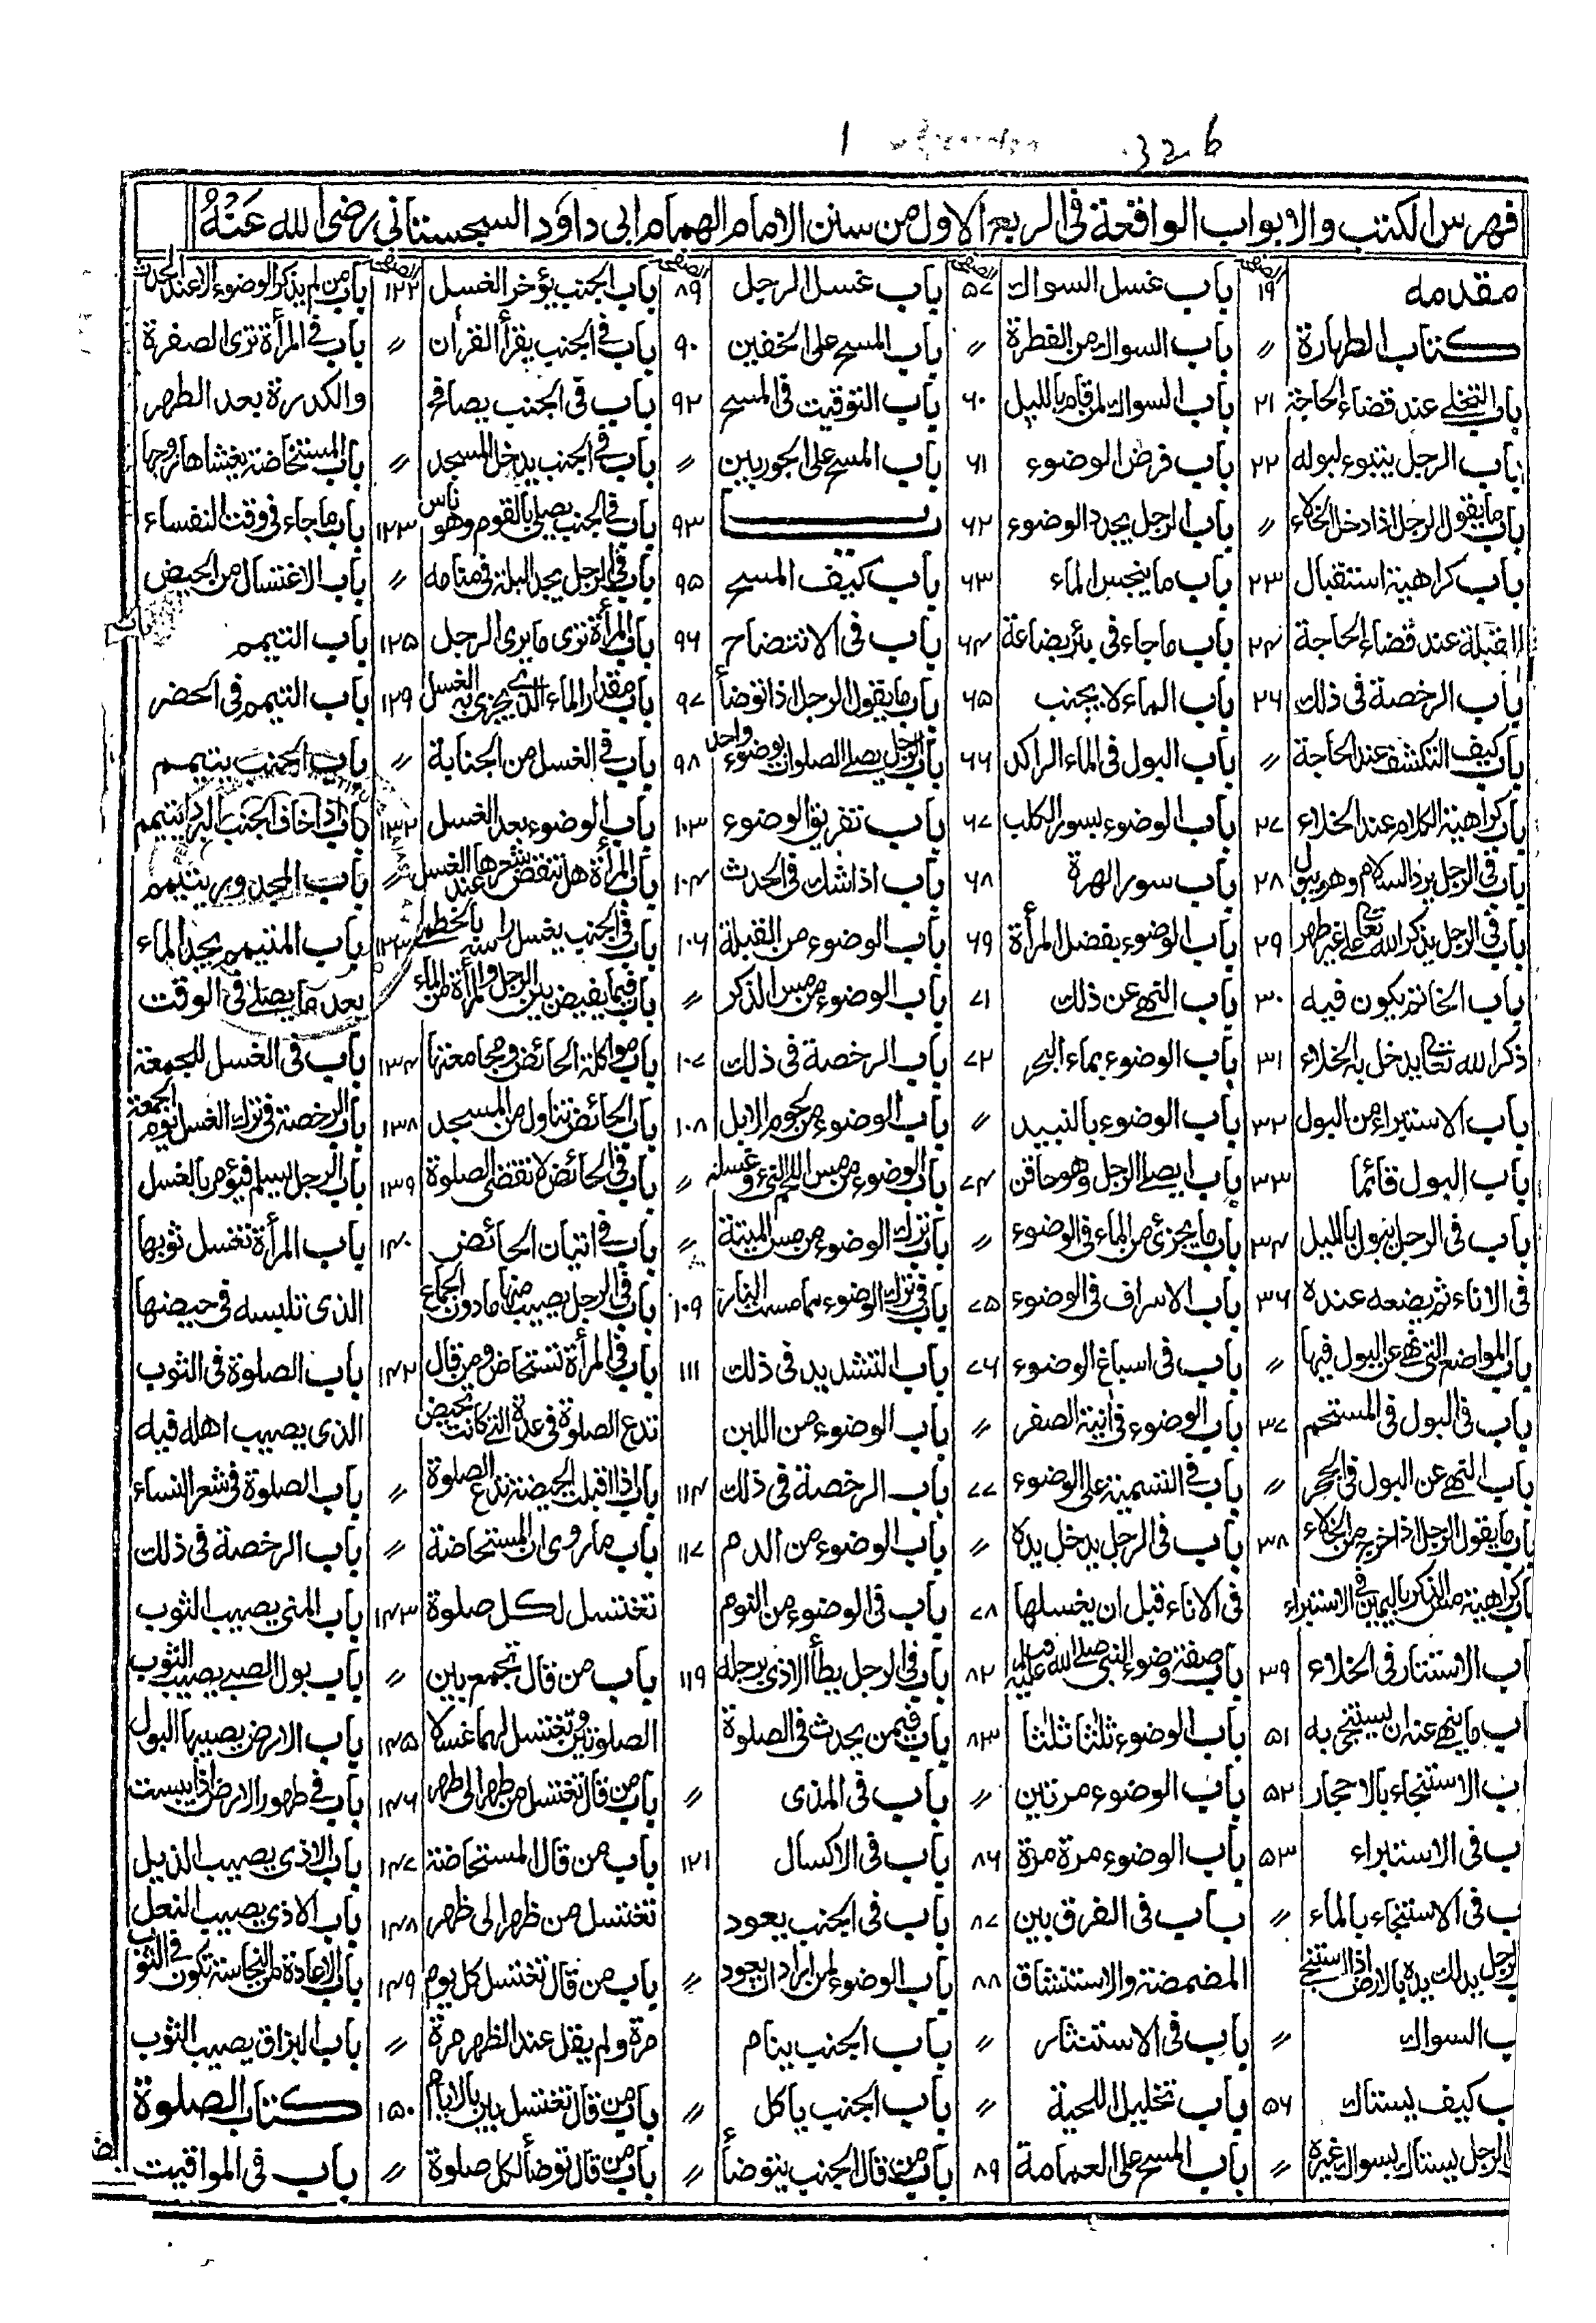 1 326
فهرس الكتب والابواب الواقعة فى الربع الاول من سنن الامام الهمام ابى داؤد السجستاني رضى الله عَنْهُ
مقدمه ١٩
كتاب الطهارة //
باب التخلي عند قضاء الحاجة ٢١
باب الرجل يتبوء لبوله ٢٢
باب ما يقول الرجل اذا دخل الخلاء //
باب كراهية استقبال ٢٣
القبلة عند قضاء الحاجة ٢٤
باب الرخصة فى ذلك ٢٦
باب كيف التكشف عند الحاجة //
باب كراهية الكلام عند الخلاء ٢٧
باب فى الرجل يرد السلام وهو يبول ٢٨
باب فى الرجل يذكر الله تعالى على غير طهر ٢٩
باب الخاتم يكون فيه ٣٠
ذكر الله تعالى يدخل به الخلاء ٣١
باب الاستبراء من البول ٣٢
باب البول قائما ٣٣
باب فى الرجل يبول بالليل ٣٤
فى الاناء ثم يضعه عنده ٣٦
باب المواضع التى نهى عن البول فيها //
باب فى البول فى المستحم ٣٧
باب النهى عن البول فى الجحر //
باب ما يقول الرجل اذا خرج من الخلاء ٣٨
باب كراهية مس الذكر باليمين فى الاستبراء
اب الاستتار فى الخلاء ٣٩
اب ما ينهى عنه ان يستنجى به ٥١
ب الاستنجاء بالاحجار ٥٢
ب فى الاستبراء ٥٣
ب فى الاستنجاء بالماء //
ب الرجل يدلك يده بالارض اذا استنجى
ب السواك //
ب كيف يستاك ٥٦
الرجل يستاك بسواك غيره //
باب غسل السواك ٥٧
باب السواك من الفطرة //
باب السواك لمن قام بالليل ٦٠
باب فرض الوضوء ٦١
باب الرجل يجدد الوضوء ٦٢
باب ما ينجس الماء ٦٣
باب ما جاء فى بئر بضاعة ٦٤
باب الماء لا يجنب ٦٥
باب البول فى الماء الراكد ٦٦
باب الوضوء بسور الكلب ٦٧
باب سور الهرة ٦٨
باب الوضوء بفضل المرأة ٦٩
باب النهى عن ذلك ٧١
باب الوضوء بماء البحر ٧٢
باب الوضوء بالنبيذ //
باب ايصلى الرجل وهو حاقن ٧٤
باب ما يجزئ من الماء فى الوضوء //
باب الاسراف فى الوضوء ٧٥
باب فى اسباغ الوضوء ٧٦
باب الوضوء فى انية الصفر //
باب فى التسمية على الوضوء ٧٧
باب فى الرجل يدخل يده //
فى الاناء قبل ان يغسلها ٧٨
باب صفة وضوء النبى صلى الله عليه وسلم ٨٢
باب الوضوء ثلثا ثلثا ٨٣
باب الوضوء مرتين //
باب الوضوء مرة مرة ٨٦
باب فى الفرق بين ٨٧
المضمضة والاستنشاق ٨٨
باب فى الاستنثار //
باب تخليل اللحية //
باب المسح على العمامة ٨٩
باب غسل الرجل ٨٩
باب المسح على الخفين ٩٠
باب التوقيت فى المسح ٩٢
باب المسح على الجوربين //
باب ٩٣
باب كيف المسح ٩٥
باب فى الانتضاح ٩٦
باب ما يقول الرجل اذا توضأ ٩٧
باب الرجل يصلى الصلوات بوضوء واحد ٩٨
باب تفريق الوضوء ١٠٣
باب اذا شك فى الحدث ١٠٤
باب الوضوء من القبلة ١٠٦
باب الوضوء من مس الذكر //
باب الرخصة فى ذلك ١٠٧
باب الوضوء من لحوم الابل ١٠٨
باب الوضوء من مس اللحم النئ وغسله //
باب ترك الوضوء من مس الميتة //
باب فى ترك الوضوء مما مست النار ١٠٩
باب التشديد فى ذلك ١١١
باب الوضوء من اللبن
باب الرخصة فى ذلك ١١٤
باب الوضوء من الدم ١١٧
باب فى الوضوء من النوم
باب فى الرجل يطأ الاذى برجله ١١٩
باب فيمن يحدث فى الصلوة
باب فى المذى //
باب فى الاكسال ١٢١
باب فى الجنب يعود
باب الوضوء لمن اراد ان يعود //
باب الجنب ينام
باب الجنب ياكل //
باب من قال الجنب يتوضأ //
باب الجنب يؤخر الغسل ١٢٢
باب فى الجنب يقرأ القرأن //
باب فى الجنب يصافح
باب فى الجنب يدخل المسجد //
باب فى الجنب يصلى بالقوم وهو ناس ١٢٣
باب فى الرجل يجد البلة فى منامه //
باب المرأة ترى ما يرى الرجل ١٢٥
باب مقدار الماء الذى يجزئ به الغسل ١٢٩
باب فى الغسل من الجنابة //
باب الوضوء بعد الغسل ١٣٢
باب المرأة هل تنقض شعرها عند الغسل //
باب فى الجنب يغسل راسه بالخطمى ١٣٣
باب فيما يفيض بين الرجل والمرأة من الماء
باب مواكلة الحائض ومجامعتها ١٣٤
باب الحائض تناول من المسجد ١٣٨
باب فى الحائض لا تقضى الصلوة ١٣٩
باب فى اتيان الحائض ١٤٠
باب فى الرجل يصيب منها ما دون الجماع
باب فى المرأة تستحاض ومن قال ١٤٢
تدع الصلوة فى عدة التى كانت تحيض
باب اذا اقبلت الحيضة تدع الصلوة //
باب ما روى ان المستحاضة //
تغتسل لكل صلوة ١٤٣
باب من قال تجمع بين //
الصلوتين وتغتسل لهما غسلا ١٤٥
باب من قال تغتسل من طهر الى طهر ١٤٦
باب من قال المستحاضة ١٤٧
تغتسل من ظهر الى ظهر ١٤٨
باب من قال تغتسل كل يوم ١٤٩
مرة ولم يقل عند الظهر مرة //
باب من قال تغتسل بين الايام ١٥٠
باب من قال توضأ لكل صلوة //
باب من لم يذكر الوضوء الا عند الحدث
باب فى المرأة ترى الصفرة
والكدرة بعد الطهر
باب المستحاضة يغشاها زوجها
باب ما جاء فى وقت النفساء
باب الاغتسال من الحيض
باب التيمم
باب التيمم فى الحضر
باب الجنب يتيمم
باب اذا خاف الجنب البرد ايتيمم
باب المجدور يتيمم
باب المتيمم يجد الماء
بعد ما يصلى فى الوقت
باب فى الغسل للجمعة
باب الرخصة فى ترك الغسل يوم الجمعة
باب الرجل يسلم فيؤمر بالغسل
باب المرأة تغسل ثوبها
الذى تلبسه فى حيضها
باب الصلوة فى الثوب
الذى يصيب اهله فيه
باب الصلوة فى شعر النساء
باب الرخصة فى ذلك
باب المنى يصيب الثوب
باب بول الصبى يصيب الثوب
باب الارض يصيبها البول
باب فى طهور الارض اذا يبست
باب الاذى يصيب الذيل
باب الاذى يصيب النعل
باب الاعادة من النجاسة تكون فى الثوب
باب البزاق يصيب الثوب
كتاب الصلوة
باب فى المواقيت